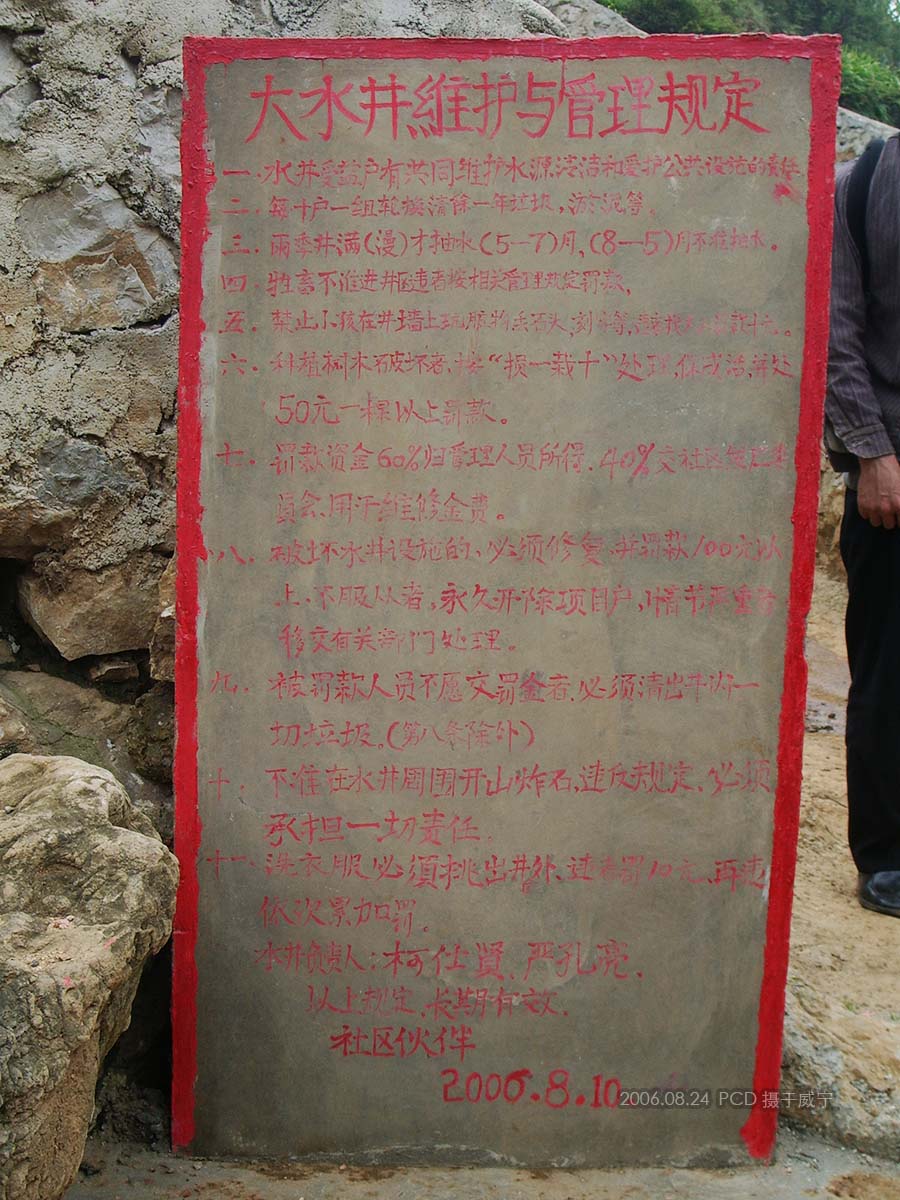 大水井維护与管理规定
一.水井受益户有共同维护水源洁洁和爱护公共设施的责任
二.每十户一组轮换清除一年垃圾,淤泥等。
三.雨季井满(漫)才抽水(5—7)月,(8—5)月不准抽水。
四.牲畜不准进井区违者按相关管理规定罚款,
五.禁止小孩在井墙上玩耍物丢石头,刻
六.种植树木破坏者,按“损一栽十”处理,保成活,并处
50元一棵以上罚款。
七.罚款资金60%归管理人员所得.40%交社区管理委
员会.用于维修金费。
八.破坏水井设施的、必须修复、并罚款100元以
上.不服从者,永久开除项目户,情节严重者
移交有关部门处理。
九.被罚款人员不愿交罚金者.必须清出井内一
切垃圾。(第八条除外)
十.不准在水井周围开山炸石,违反规定.必须
承担一切责任.
十一.洗衣服必须挑出井外、违者罚10元、再违
依次累加罚。
水井负责人:柯仕贤.严孔亮.
以上规定.长期有效.
社区伙伴
2006.8.10
2006.08.24 PCD 摄于威宁